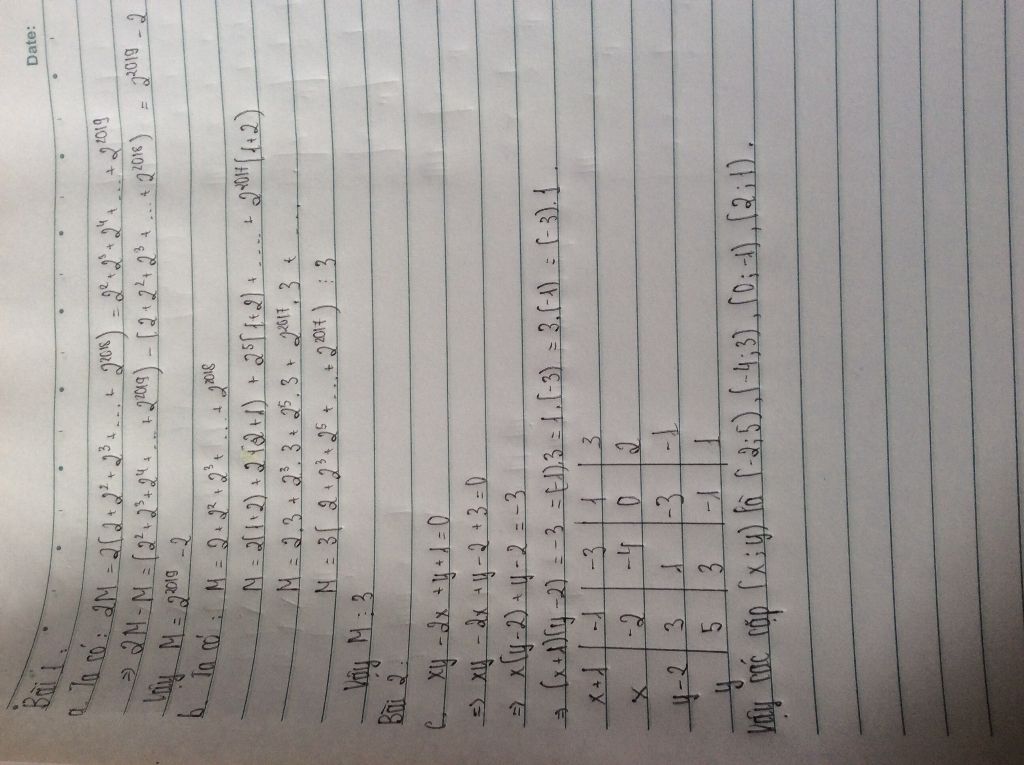 Date:
Bài 1:
a. Ta có: 2M = 2(2 + 2² + 2³ + ... + 2²⁰¹⁸) = 2² + 2³ + 2⁴ + ... + 2²⁰¹⁹
=> 2M - M = (2² + 2³ + 2⁴ + ... + 2²⁰¹⁹) - (2 + 2² + 2³ + ... + 2²⁰¹⁸) = 2²⁰¹⁹ - 2
Vậy M = 2²⁰¹⁹ - 2
b. Ta có: M = 2 + 2² + 2³ + ... + 2²⁰¹⁸
M = 2(1+2) + 2³(2+1) + 2⁵(1+2) + .... + 2²⁰¹⁷(1+2)
M = 2.3 + 2³.3 + 2⁵.3 + 2²⁰¹⁷.3 + ....
M = 3(2 + 2³ + 2⁵ + ... + 2²⁰¹⁷) ⋮ 3
Vậy M ⋮ 3
Bài 2:
c. xy - 2x + y + 1 = 0
=> xy - 2x + y - 2 + 3 = 0
=> x(y-2) + y - 2 = -3
=> (x+1)(y-2) = -3 = (-1).3 = 1.(-3) = 3.(-1) = (-3).1.
x+1 | -1 | -3 | 1 | 3
x | -2 | -4 | 0 | 2
y-2 | 3 | 1 | -3 | -1
y | 5 | 3 | -1 | 1
Vậy các cặp (x;y) là (-2;5), (-4;3), (0;-1), (2;1).